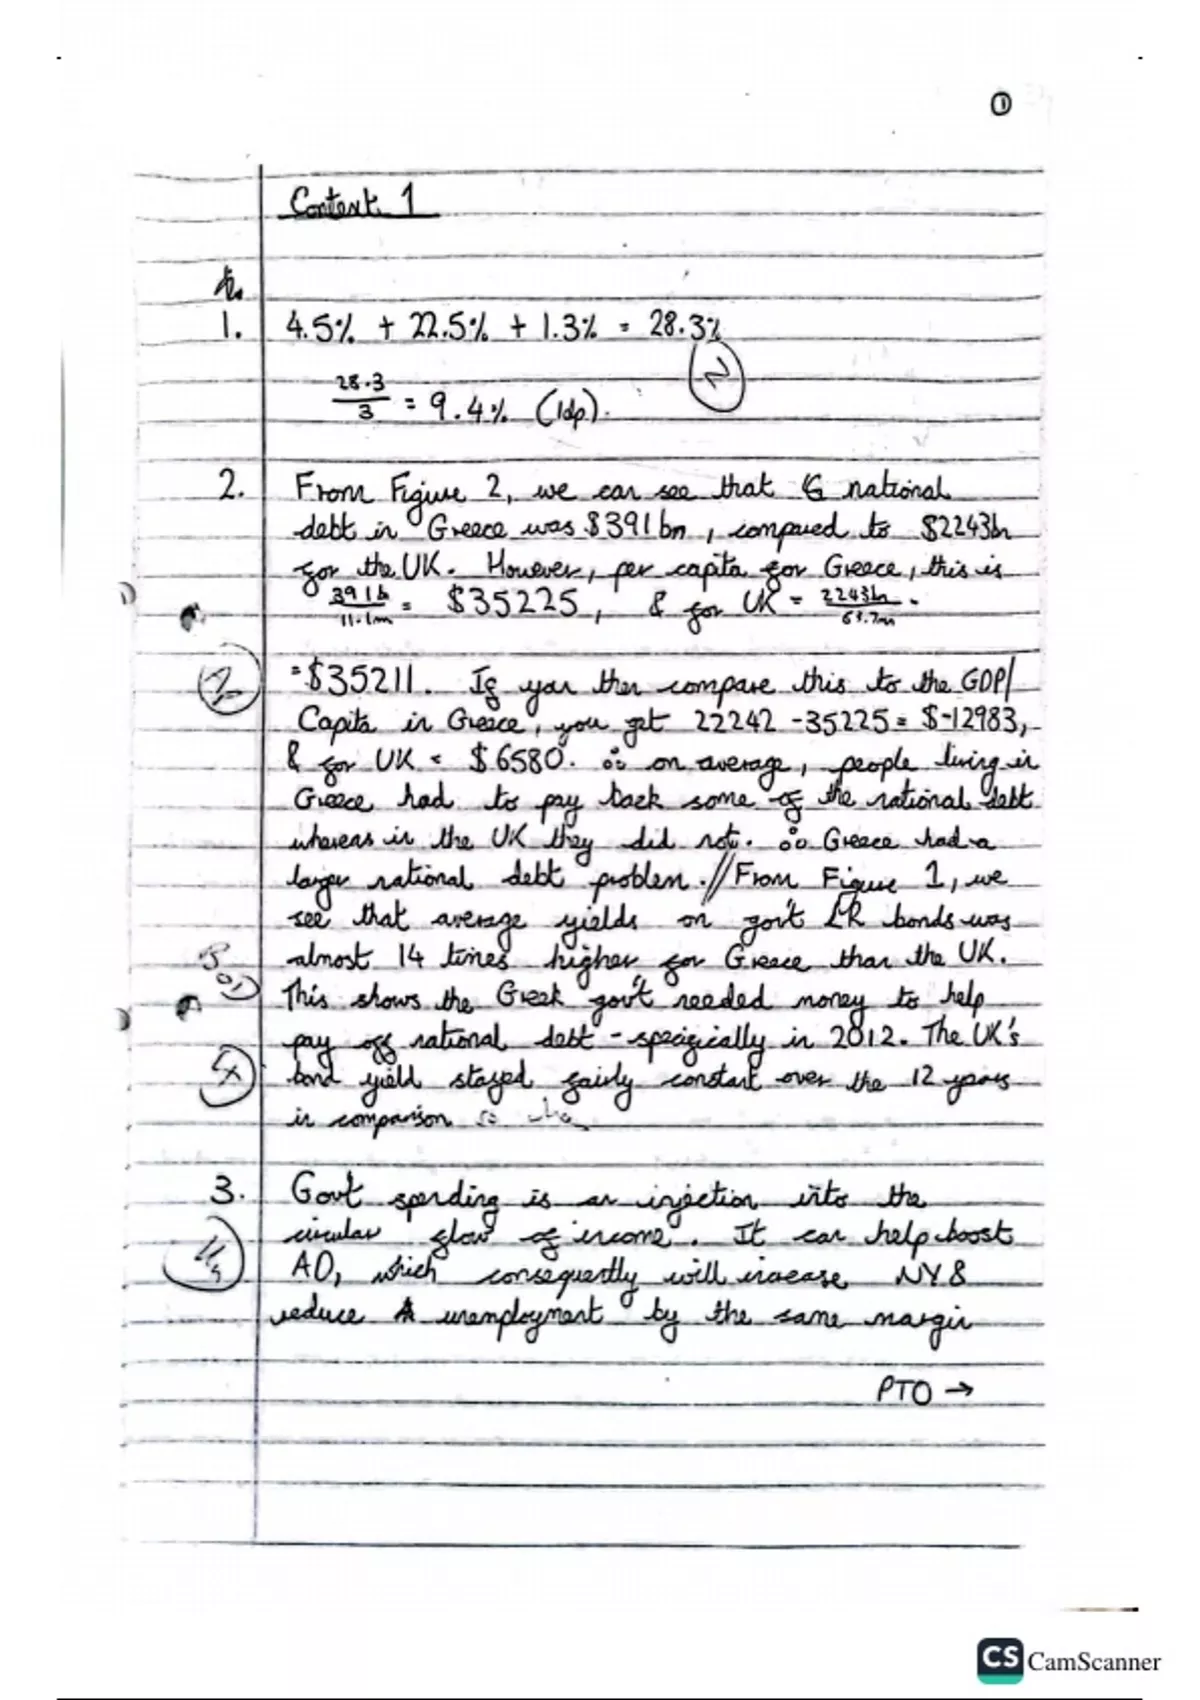 ①
Context 1
1. 4.5% + 22.5% + 1.3% = 28.3%
28.3/3 = 9.4% (1dp).
2. From Figure 2, we can see that national
debt in Greece was $391bn, compared to $2243bn
for the UK. However, per capita for Greece, this is
391b/11.1m = $35225, & for UK = 2243bn/63.7m
= $35211. If you then compare this to the GDP/
Capita in Greece, you get 22242 - 35225 = $-12983,
& for UK = $6580. ∴ on average, people living in
Greece had to pay back some of the national debt
whereas in the UK they did not. ∴ Greece had a
larger national debt problem. // From Figure 1, we
see that average yields on gov't LR bonds was
almost 14 times higher for Greece than the UK.
This shows the Greek gov't needed money to help
pay off national debt - specifically in 2012. The UK's
bond yield stayed fairly constant over the 12 years
in comparison
3. Govt spending is an injection into the
circular flow of income. It can help boost
AD, which consequently will increase NY &
reduce unemployment by the same margin
PTO →
CS CamScanner